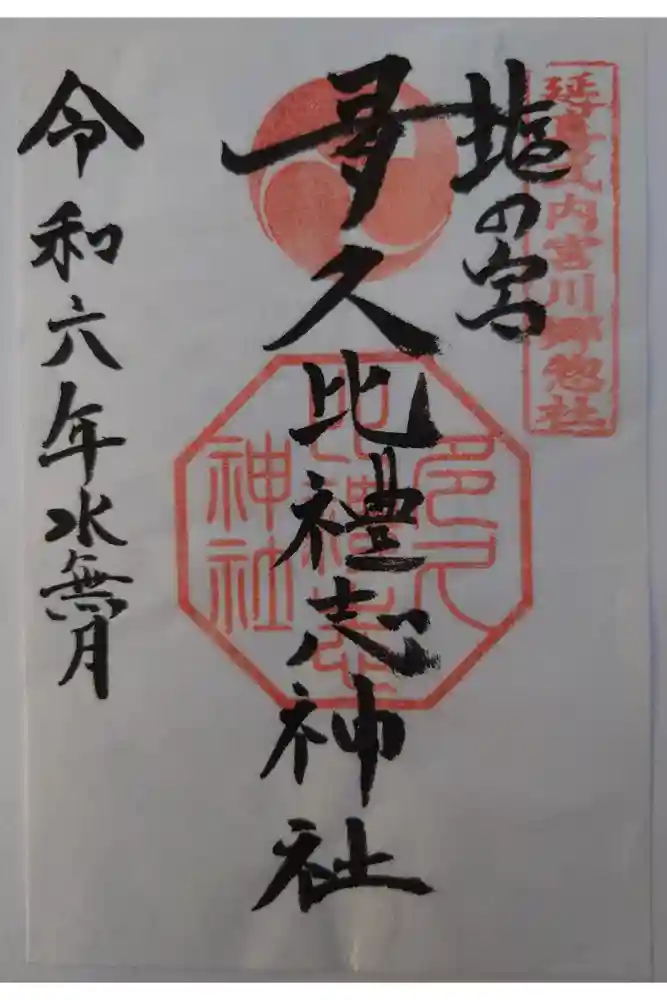 延喜式内宮川郷惣社
塩の宮
多久比禮志神社
多久比禮志神社
令和六年水無月